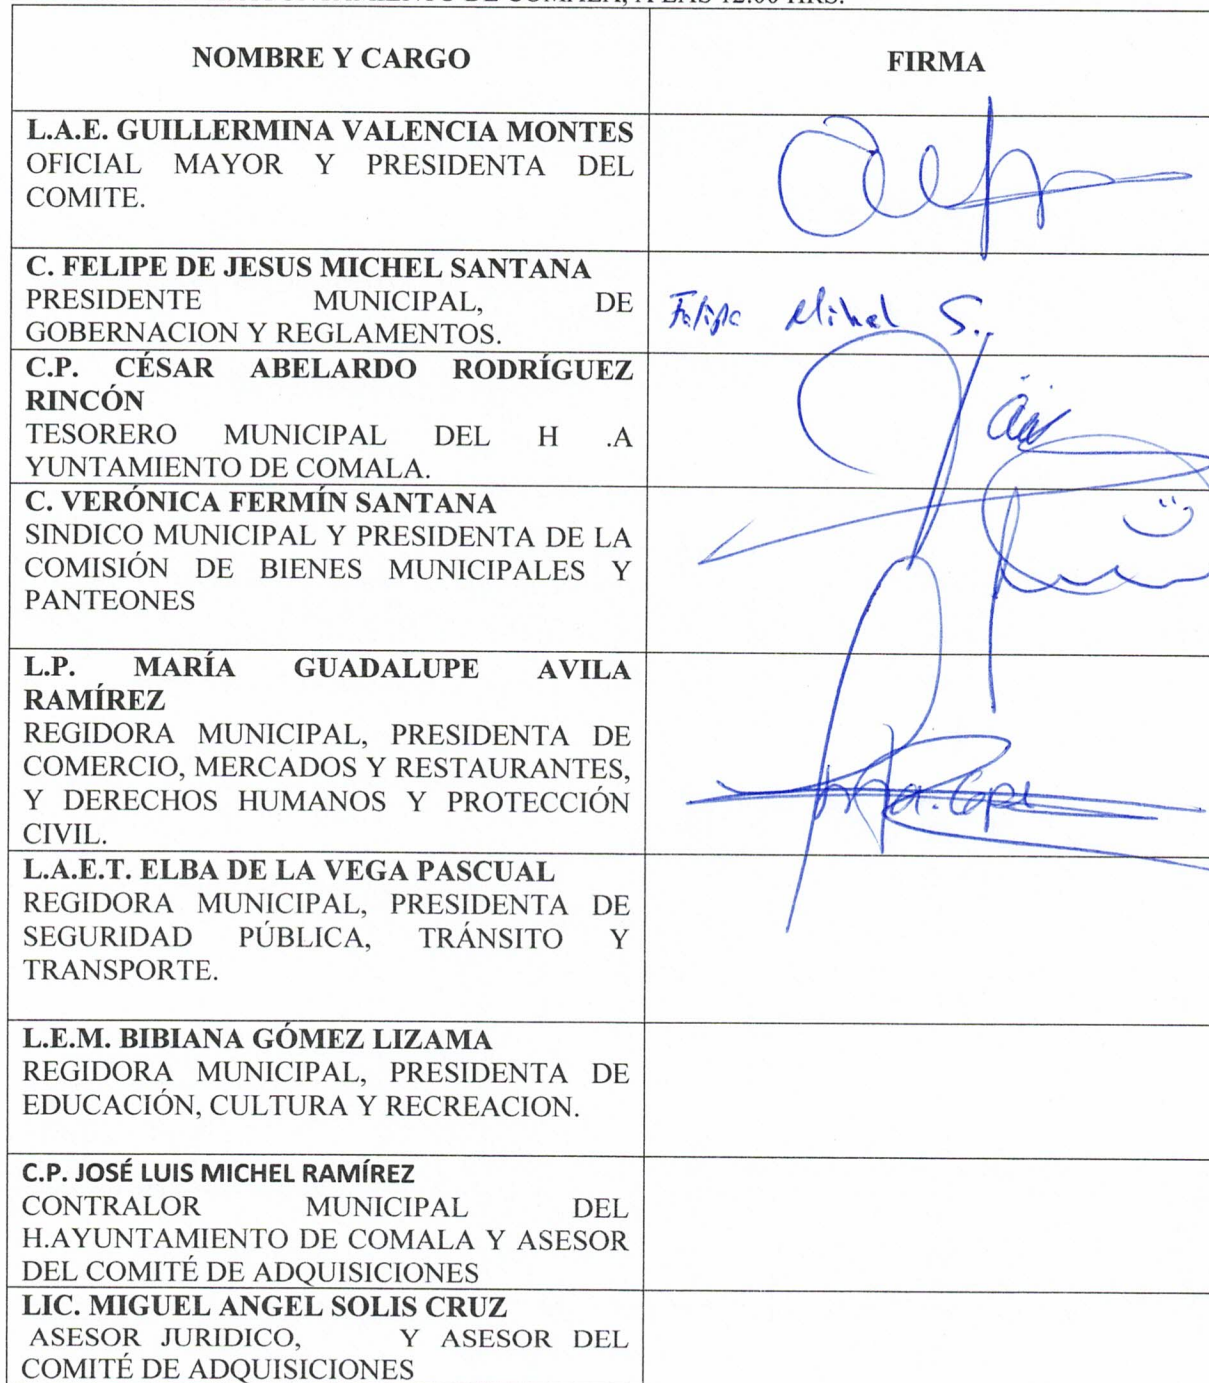 NOMBRE Y CARGO
FIRMA
L.A.E. GUILLERMINA VALENCIA MONTES
OFICIAL MAYOR Y PRESIDENTA DEL
COMITE.
C. FELIPE DE JESUS MICHEL SANTANA
PRESIDENTE MUNICIPAL, DE
GOBERNACION Y REGLAMENTOS.
Felipe Mihel S.
C.P. CÉSAR ABELARDO RODRÍGUEZ
RINCÓN
TESORERO MUNICIPAL DEL H .A
YUNTAMIENTO DE COMALA.
C. VERÓNICA FERMÍN SANTANA
SINDICO MUNICIPAL Y PRESIDENTA DE LA
COMISIÓN DE BIENES MUNICIPALES Y
PANTEONES
L.P. MARÍA GUADALUPE AVILA
RAMÍREZ
REGIDORA MUNICIPAL, PRESIDENTA DE
COMERCIO, MERCADOS Y RESTAURANTES,
Y DERECHOS HUMANOS Y PROTECCIÓN
CIVIL.
L.A.E.T. ELBA DE LA VEGA PASCUAL
REGIDORA MUNICIPAL, PRESIDENTA DE
SEGURIDAD PÚBLICA, TRÁNSITO Y
TRANSPORTE.
L.E.M. BIBIANA GÓMEZ LIZAMA
REGIDORA MUNICIPAL, PRESIDENTA DE
EDUCACIÓN, CULTURA Y RECREACION.
C.P. JOSÉ LUIS MICHEL RAMÍREZ
CONTRALOR MUNICIPAL DEL
H.AYUNTAMIENTO DE COMALA Y ASESOR
DEL COMITÉ DE ADQUISICIONES
LIC. MIGUEL ANGEL SOLIS CRUZ
ASESOR JURIDICO, Y ASESOR DEL
COMITÉ DE ADQUISICIONES